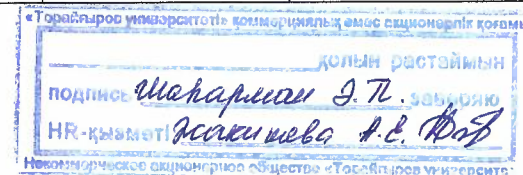 «Торайғыров университеті» коммерциялық емес акционерлік қоғамы
қолын растаймын
подпись Шапарман Э.П. заверяю
HR-қызметі Жакишева А.Е.
Некоммерческое акционерное общество «Торайғыров университет»